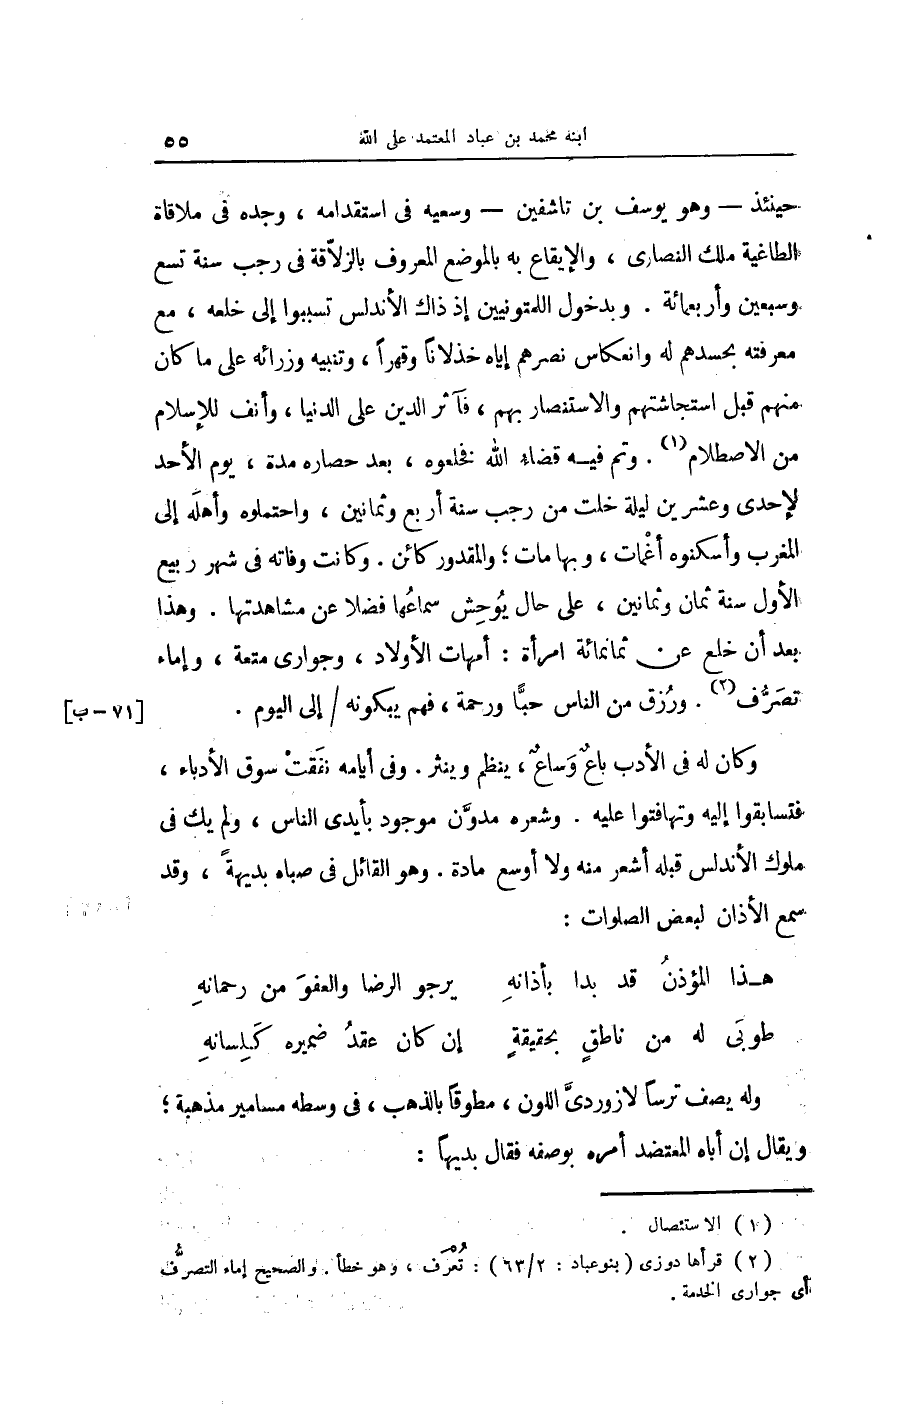 ابنه محمد بن عباد المعتمد على الله ٥٥
حينئذ — وهو يوسف بن تاشفين — وسعيه فى استقدامه ، وجده فى ملاقاة
الطاغية ملك النصارى ، والإيقاع به بالموضع المعروف بالزلاّقة فى رجب سنة تسع
وسبعين وأربعمائة . وبدخول اللمتونيين إذ ذاك الأندلس تسببوا إلى خلعه ، مع
معرفته بحسدهم له وانعكاس نصرهم إياه خذلاناً وقهراً ، وتنبيه وزرائه على ما كان
منهم قبل استجاشتهم والاستنصار بهم ، فآثر الدين على الدنيا ، وأنف للإسلام
من الاصطلام(١) . وتم فيه قضاء الله فخلعوه ، بعد حصاره مدة ، يوم الأحد
لإحدى وعشرين ليلة خلت من رجب سنة أربع وثمانين ، واحتملوه وأهلَه إلى
المغرب وأسكنوه أغْمات ، وبها مات ؛ والمقدور كائن . وكانت وفاته فى شهر ربيع
الأول سنة ثمان وثمانين ، على حال يُوحِش سماعُها فضلا عن مشاهدتها . وهذا
بعد أن خلع عن ثمانمائة امرأة : أمهات الأولاد ، وجوارى متعة ، وإماء
تصَرُّف(٢) . ورُزق من الناس حبًّا ورحمة ، فهم يبكونه / إلى اليوم . [٧١ – ب]
وكان له فى الأدب باعٌ وَساعٌ ، ينظم وينثر . وفى أيامه نفَقتْ سوق الأدباء ،
فتسابقوا إليه وتهافتوا عليه . وشعره مدوَّن موجود بأيدى الناس ، ولم يك فى
ملوك الأندلس قبله أشعر منه ولا أوسع مادة . وهو القائل فى صباه بديهةً ، وقد
سمع الأذان لبعض الصلوات :
هـذا المؤذنُ قد بدا بأذانهِ يرجو الرضا والعفوَ من رحمانهِ
طوبَى له من ناطقٍ بحقيقةٍ إن كان عقدُ ضميره كَلِسانهِ
وله يصف ترساً لازوردىَّ اللون ، مطوقاً بالذهب ، فى وسطه مسامير مذهبة ؛
ويقال إن أباه المعتضد أمره بوصفه فقال بديهاً :
(١) الاستئصال .
(٢) قرأها دوزى (بنوعباد : ٦٣/٢) : تُعْرَف ، وهو خطأ . والصحيح إماء التصرُّف
أى جوارى الخدمة .